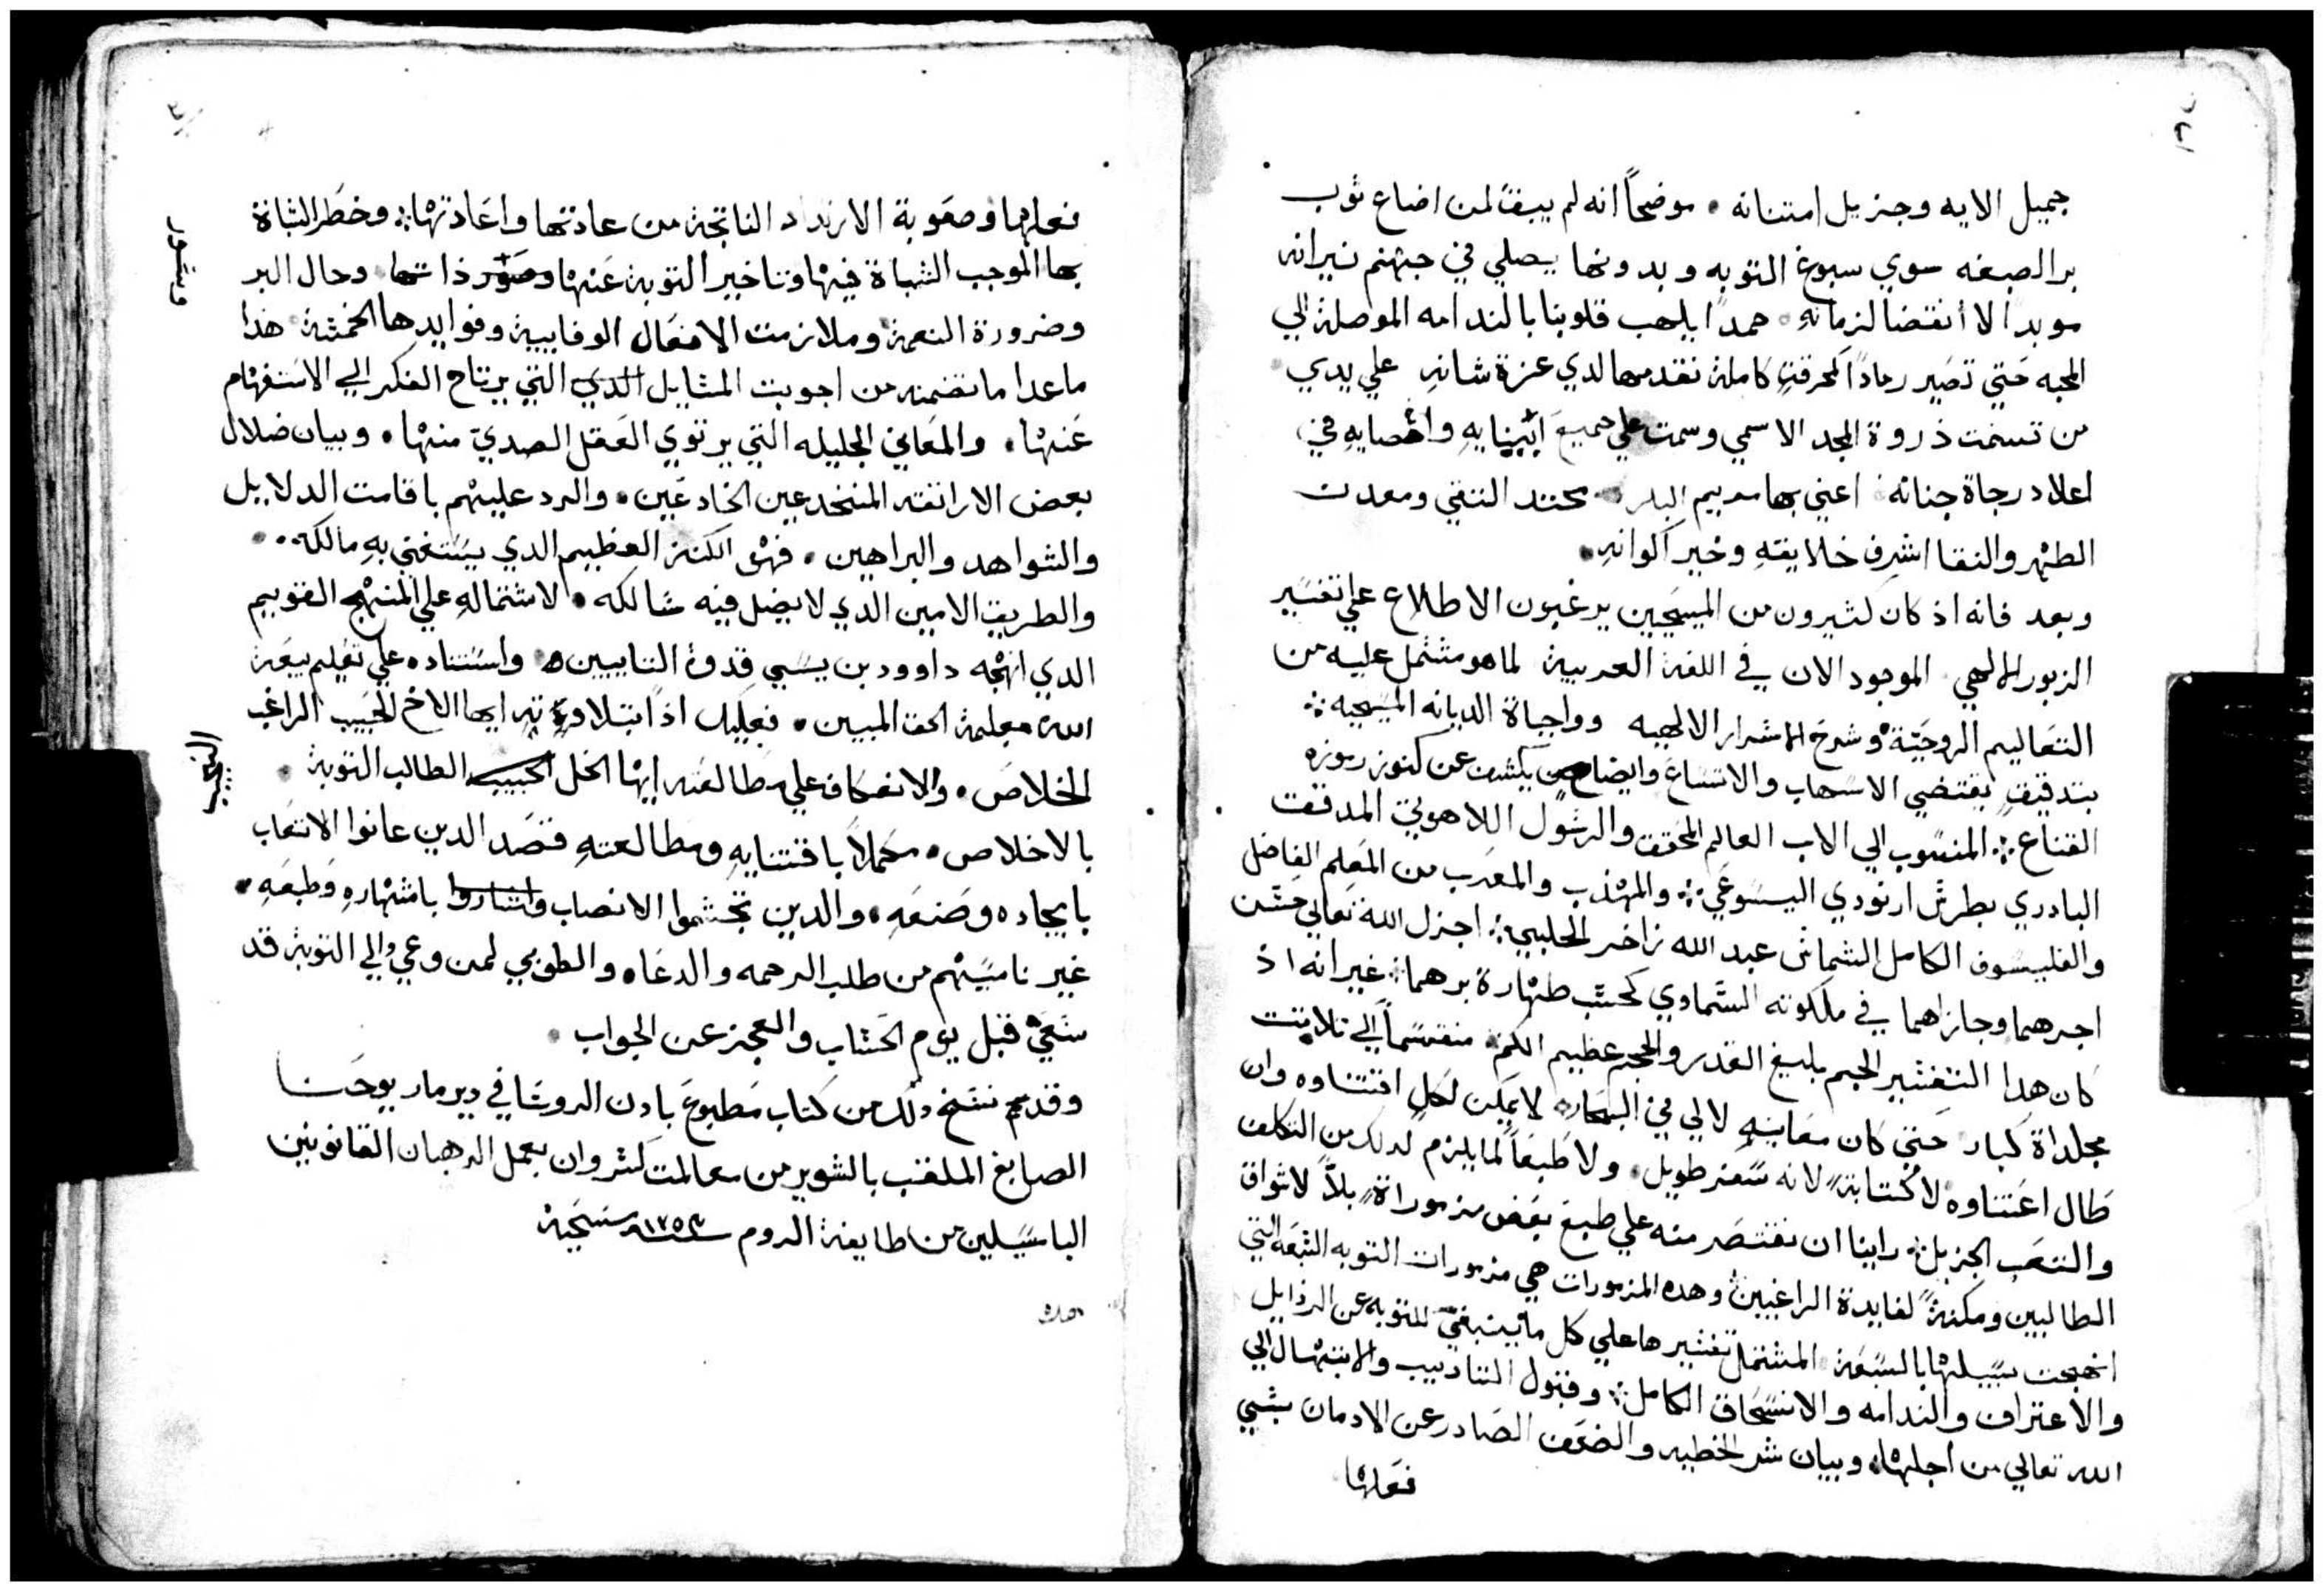 جميل الايه وجزيل امتنانه • موضحاً انه لم يبقَ لمن اضاع ثوب
بر الصبغه سوي سبوغ التوبه وبدونها يصلي في جهنم نيرانه
موبداً لا أنقضا لزمانهِ • حمداً يلهب قلوبنا بالندامه الموصلة الي
المحبه حَتي تصَير رماداً كمحرقةٍ كاملة نقدمها لدي عزة شانهِ علي يدي
من تسنمت ذروة المجد الاسمي وسمت علي جميعَ وافصايهِ في
اعلا درجاة جنانه اعني بها مريم البكر محتد التقي ومعدن
الطهْر والنقا اشرف خلايقهِ وخير اكوانهِ •
وبعد فانه اذ كان كثيرون من المسيحيين يرغبون الاطلاع علي تفسَير
الزبور الالهي الموجود الان في اللغة العربية لما هو مشتمل عليه من
التعَاليم الروحيّة وشرحَ الاسرار الالهيه وواجباة الديانه المسيحيه ؞
بتدقيقٍ يقتضي الاسَهاب والاتسَاعَ وايضاح يكشف عن كنوز رموزه
القناع ؞ المنسَوب الي الاب العالم المحَقق والرسَول اللاهوتي المدقق
البادري بطرسَ ارنودي اليسَوعَي ؞ والمهْذب والمعرَب من المعَلم الفاضل
والفليسَوف الكامل الشماسَ عبد الله زاخر الحلبي ؞ اجزل الله تعَالي حسَن
اجرهما وجازاهما في ملكوته السَماوي كحسَب طهْارة برهما ؞ غير انه اذ
كان هذا التفسَير الجم بليغ القدر والحجم عظيم الكم منقسَماً الي تلاتت
مجلداة كبار حَتي كان معَانيهِ لالي في البحَار لا يمكن لكلٍ اقتناوه وان
طَال اعَتناوه لا كُتابةً لانه سَفر طويل • ولا طَبعَاً لما يلزم لدلك من التكلف
والتعَب الجزيل ؞ راينا ان نقتصَر منه علي طبعَ بعَض مزموراةٍ بلاً لاشواق
الطالبين ومكنةً لفايدة الراغبين وهده المزمورات هي مزمورات التوبه السَبعَه التي
انهجت سَبيلهْا بالسَبعَة المشتمل تفسَيرها علي كل ما ينبغي للتوبه عن الرذايل
والاعتراف والندامه والانسَحَاق الكامل ؞ وقبول التاديب والابتهْال الي
الله تعالي من اجلهْا • وبيان شر الخطيه والضعَف الصَادر عن الادمان بشي
فعَلهْا
فعلها وصعَوبة الارتداد الناتجة من عادتها واعَادتهْا ؞ وخطَر الثباة
بها الموجب الشباة فيهْا وتاخير التوبة عَنهْا وحال البر
وضرورة النعمة وملازمت الافعَال الوفايية وفوايدها الخمسَة هذا
ماعدا ما تضمنه من اجوبت المسَايل الدي التي يرتاح الفكر الي الاسَتفهْام
عَنهْا • والمعَاني الجليله التي يرتوي العَقل الصدي منهْا • وبيان ضلال
بعض الاراتقه المنخدعين الخادعَين • والرد عليهْم باقامت الدلايل
والشواهد والبراهين • فهْو الكنز العظيم الدي يسَتغني بهِ مالكه •
والطريق الامين الدي لا يضل فيه سَالكه • لاشتمالهِ علي المنهْج القويم
الدي انهْجه داوود بن يسَي قدوة التايبين واسَتناده علي تعَليم بيعَة
الله معلمة الحق المبين • فعليك اذاً بتلاوته ايها الاخ الحَبيب الراغب
الخلاصَ • والانعكاف علي مطَالعَته ايهْا الخل الطالب التوبة
بالاخلاص • مكملاً باقتنايهِ ومطَالعتهِ قصَد الدين عانوا الاتعَاب
بايجاده وصَنعَهِ • والدين تجشموا الانصاب باشتهْارهِ وَطبعَهِ •
غير ناسَيهْم من طلب الرحمه والدعَاه والطوبي لمن وعي والي التوبة قد
سَعَي قبل يوم الحَسَاب والعَجز عن الجواب •
وقد تم نسَخ ذلك من كتاب مَطبوعَ بادن الروسَا في دير مار يوحَنا
الصابغ الملقب بالشوير من معالمت كسَروان بعمل الرهبان القانونين
الباسَيلين من طايفة الروم سنة ١٧٥٣ مسَيحَية